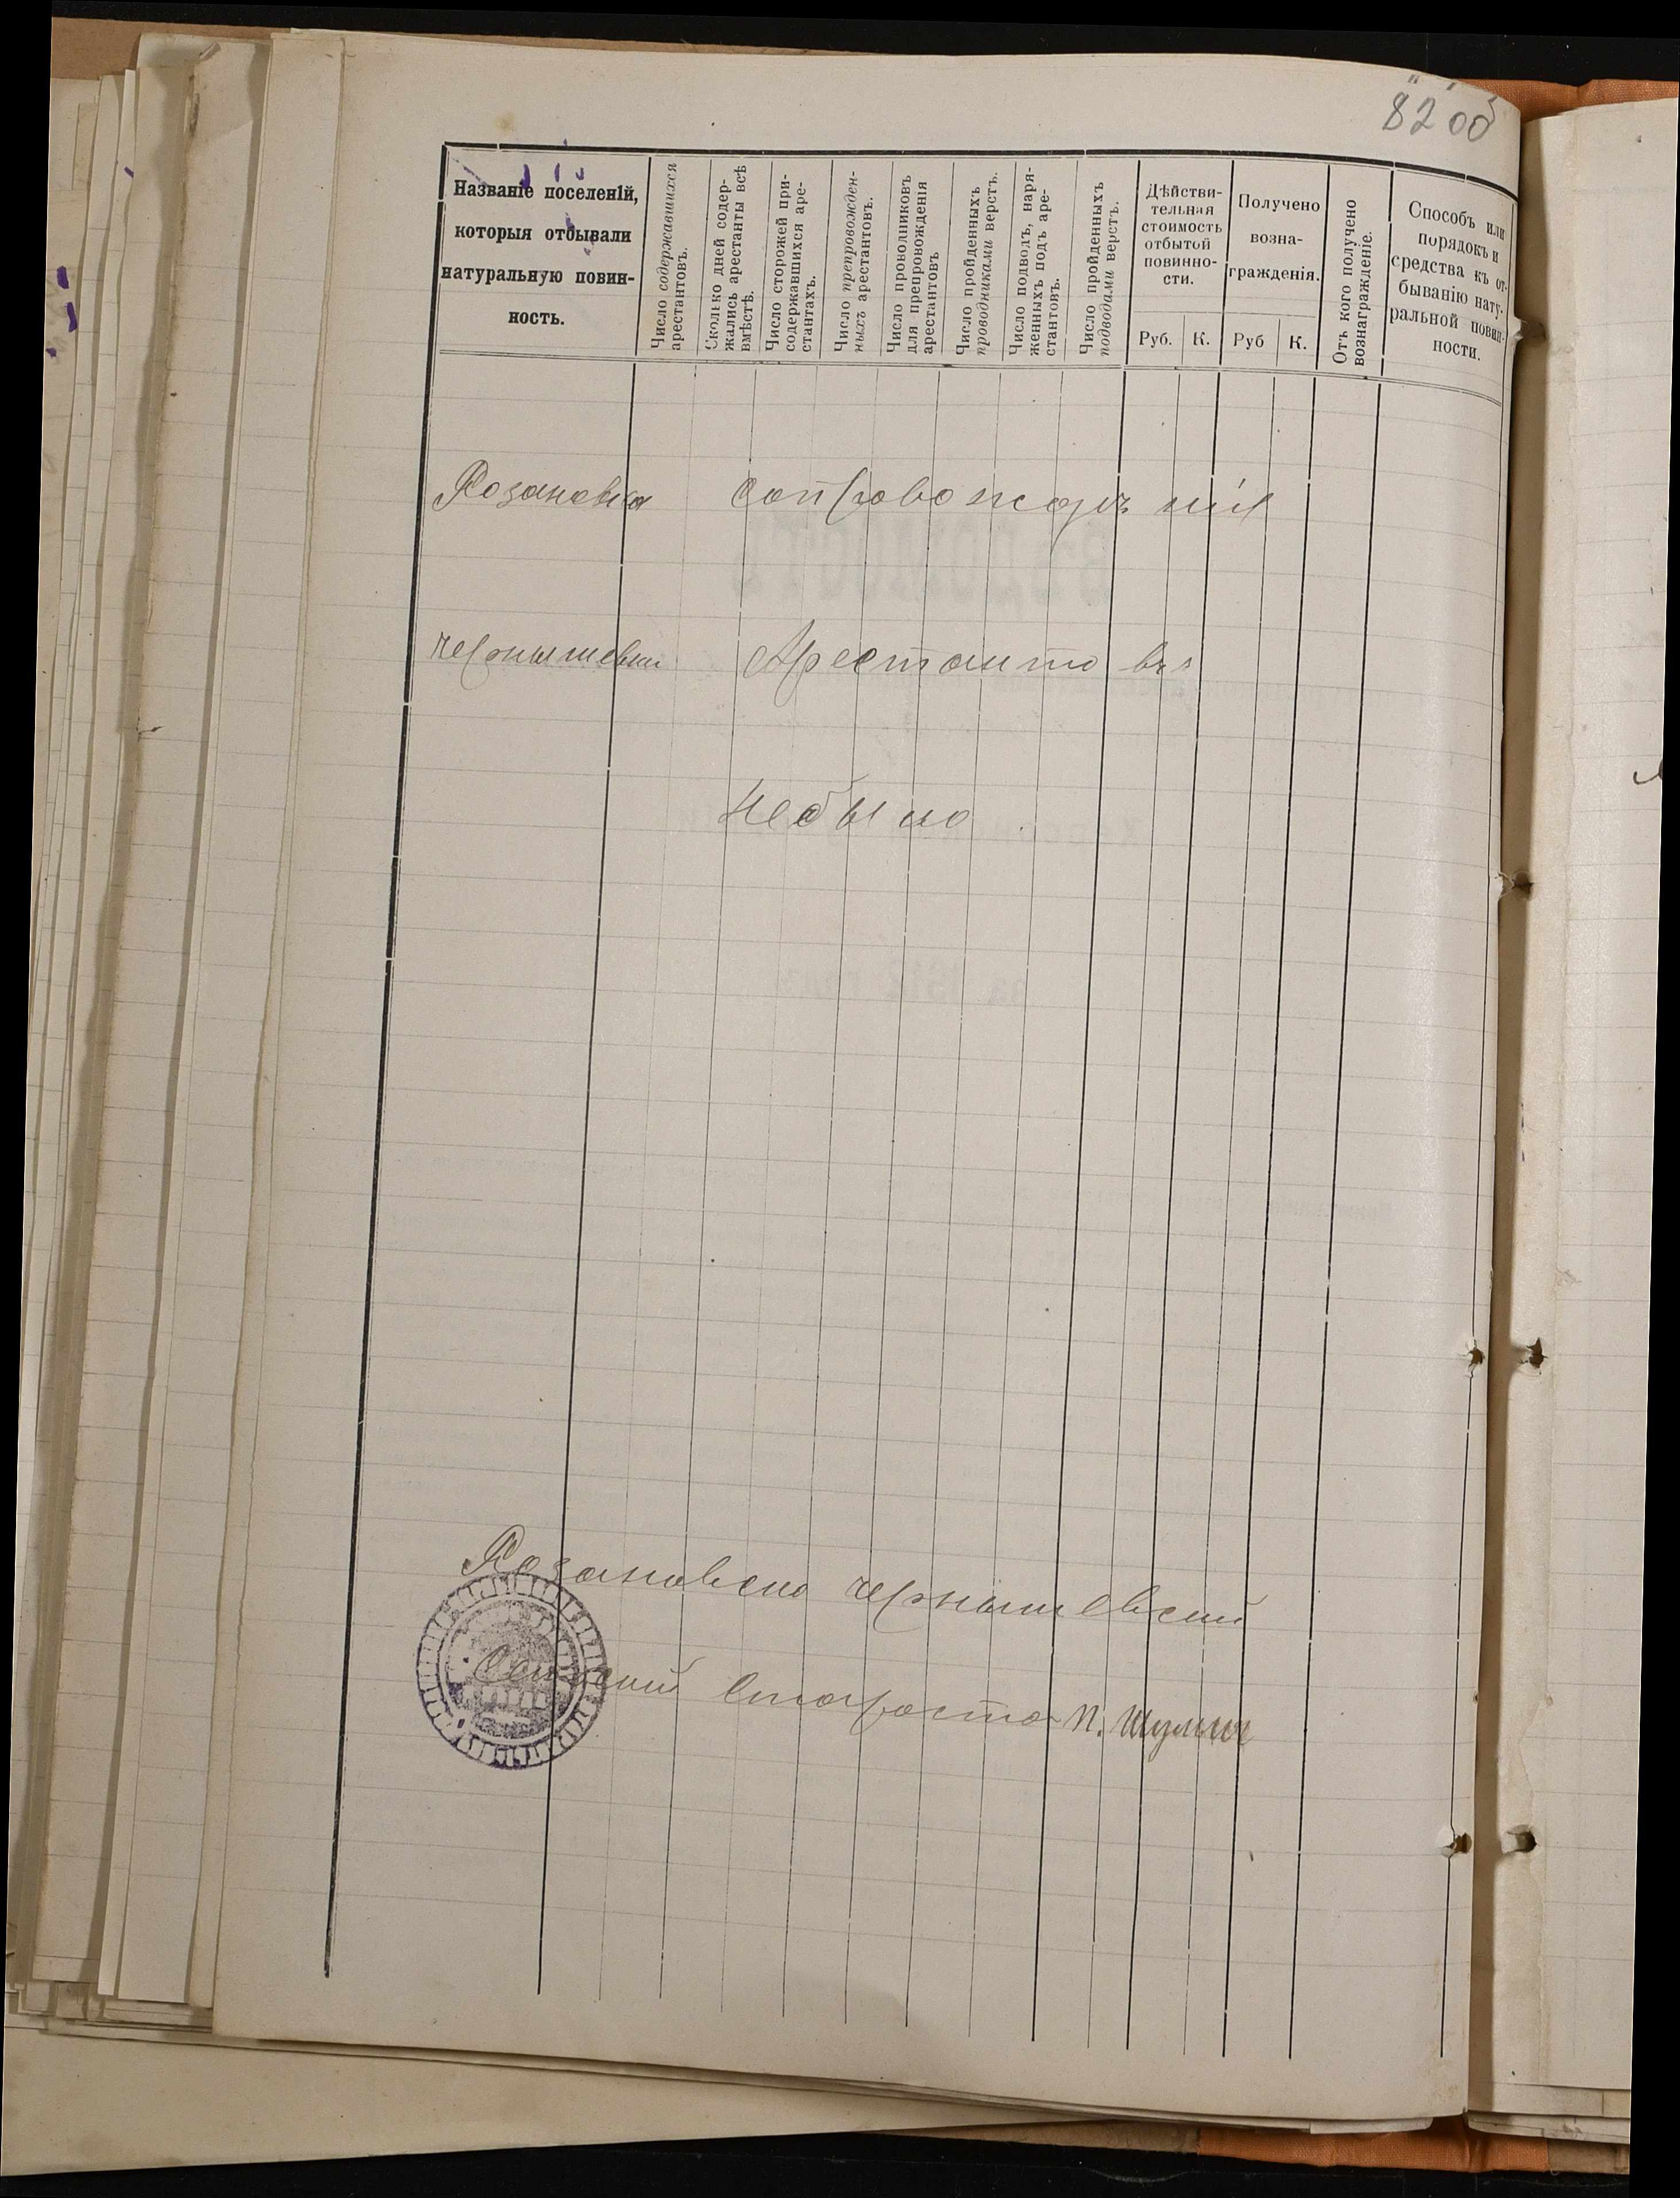 82 об
Названіе поселеній,
которыя отбывали
натуральную повин-
ность.
Число содержавшихся
арестантовъ.
Сколько дней содер-
жались арестанты всѣ
вмѣстѣ.
Число сторожей при-
содержавшихся аре-
стантахъ.
Число препровожден-
ныхъ арестантовъ.
Число проводниковъ
для препровожденія
арестантовъ
Число пройденныхъ
проводниками верстъ.
Число подводъ, наря-
женныхъ подъ аре-
стантовъ.
Число пройденныхъ
подводами верстъ.
Дѣйстви-
тельная
стоимость
отбытой
повинно-
сти.
Руб. К.
Получено
возна-
гражденія.
Руб К.
Отъ кого получено
вознагражденіе.
Способъ или
порядокъ и
средства къ от-
быванію нату-
ральной повин-
ности.
Розановка сопровождѣнія
Чернышевки Арестантовъ
Небыло
Розановско Чернышевский
Сельский Староста П. Шулыч